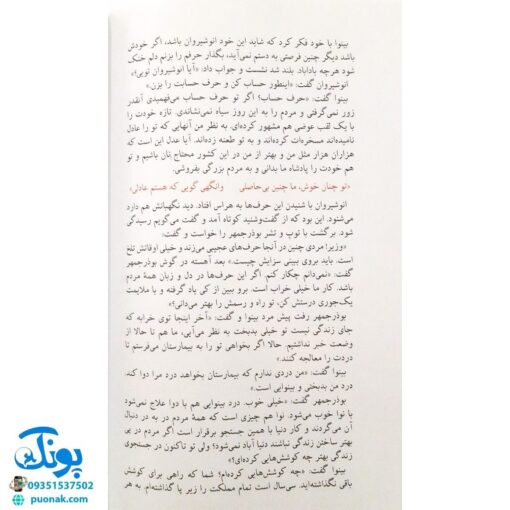 بینوا با خود فکر کرد که شاید این خود انوشیروان باشد، اگر خودش
باشد دیگر چنین فرصتی به دستم نمی‌آید، بگذار حرفم را بزنم دلم خنک
شود هرچه باداباد. بلند شد نشست و جواب داد: «آیا انوشیروان تویی؟»
انوشیروان گفت: «اینطور حساب کن و حرف حسابت را بزن.»
بینوا گفت: «حرف حساب؟ اگر تو حرف حساب می‌فهمیدی آنقدر
زور نمی‌گرفتی و مردم را به این روز سیاه نمی‌نشاندی. تازه خودت را
با یک لقب عوضی هم مشهور کرده‌ای. به نظر من آنهایی که تو را عادل
نامیده‌اند مسخره‌ات کرده‌اند و به تو طعنه زده‌اند. آیا عدل این است که
هزاران هزار مثل من و بهتر از من در این کشور محتاج نان باشیم و تو
هم خودت را پادشاه ما بدانی و به مردم بزرگی بفروشی.
«تو چنان خوش، ما چنین بی‌حاصلی وانگهی گویی که هستم عادلی»
انوشیروان با شنیدن این حرف‌ها به هراس افتاد. دید نگهبانش هم دارد
می‌شنود. این بود که از گفت‌وشنید کوتاه آمد و گفت می‌گویم رسیدگی
شود. برگشت با توپ و تشر بوذرجمهر را خواست و گفت:
«وزیر! مردی چنین در آنجا حرف‌های عجیبی می‌زند و خیلی اوقاتش تلخ
است. باید بروی ببینی سزایش چیست.» بعد آهسته در گوش بوذرجمهر
گفت: «نمی‌دانم چکار کنم. اگر این حرف‌ها در دل و زبان همهٔ مردم
باشد. کار ما خیلی خراب است. برو ببین از کی یاد گرفته و با ملایمت
یک‌جوری درستش کن، تو راه و رسمش را بهتر می‌دانی؟»
بوذرجمهر رفت پیش مرد بینوا و گفت: «آخر اینجا توی خرابه که
جای زندگی نیست تو خیلی بدبخت به نظر می‌آیی، ما هم تا حالا از
وضعت خبر نداشتیم. حالا اگر بخواهی تو را به بیمارستان می‌فرستم تا
دردت را معالجه کنند.»
بینوا گفت: «من دردی ندارم که بیمارستان بخواهد درد مرا دوا کند.
درد من بدبختی و بینوایی است.»
بوذرجمهر گفت: «خیلی خوب. درد بینوایی هم با دوا علاج نمی‌شود
با نوا خوب می‌شود. نوا هم چیزی است که همهٔ مردم در به در دنبال
آن می‌گردند و کار دنیا با همین جستجو برقرار است اگر مردم در پی
بهتر ساختن زندگی نباشند دنیا آباد نمی‌شود؟ ولی تو تاکنون در جستجوی
زندگی بهتر چه کوشش‌هایی کرده‌ای؟»
بینوا گفت: «چه کوشش‌هایی کرده‌ام؟ شما که راهی برای کوشش
باقی نگذاشته‌اید. سی‌سال است تمام مملکت را زیر پا گذاشته‌ام. به هر
پونک
09351537502
puonak.com